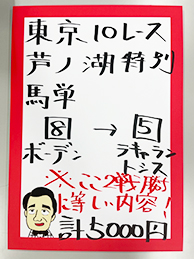 東京10レース
芦ノ湖特別
馬単
8 → 5
ボーデン ラキャラントシス
※ここ2戦勝ちに等しい内容!
計5000円